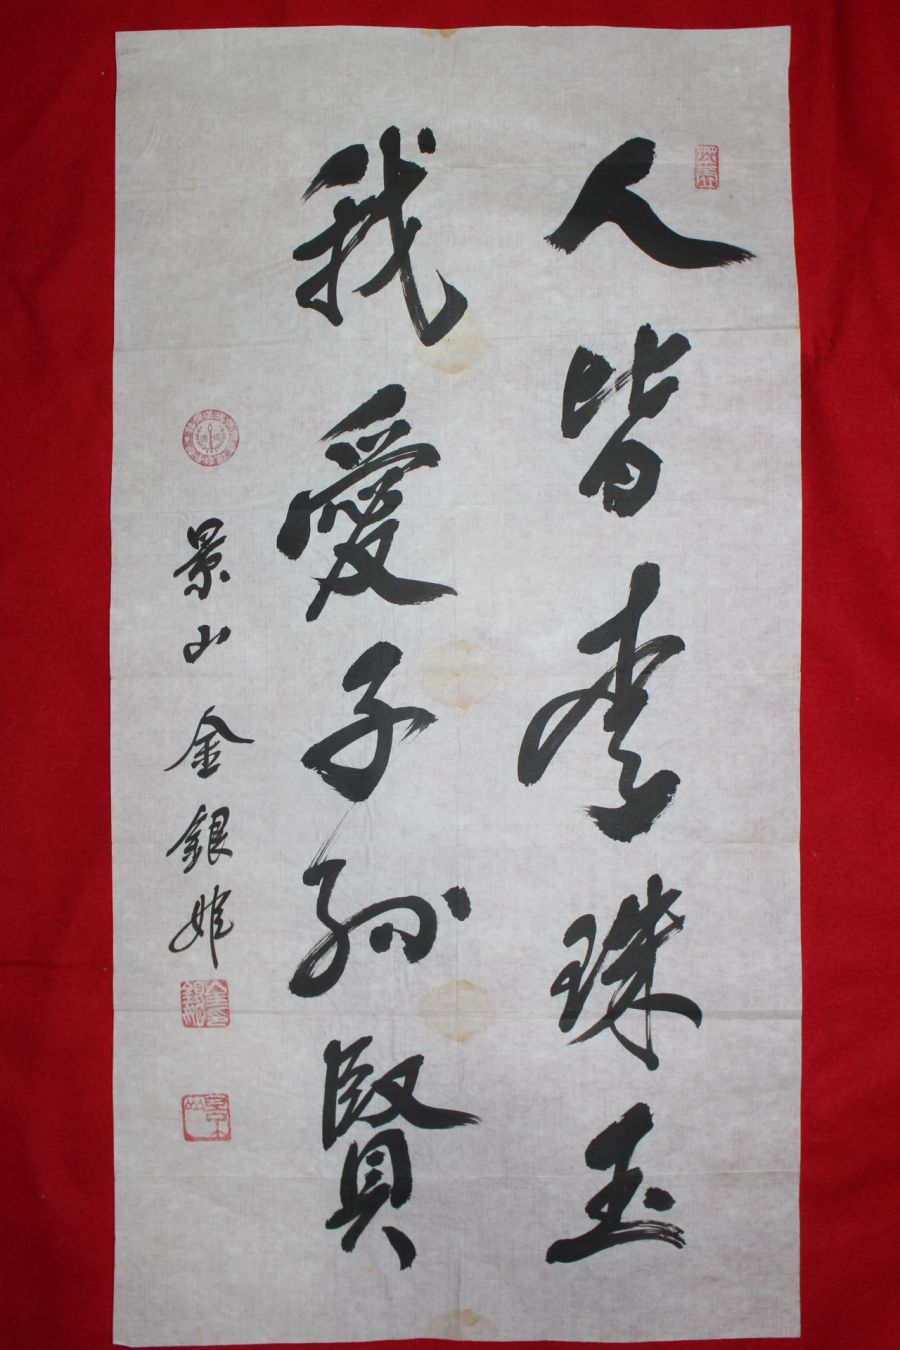 人皆珠玉
我愛子孫賢
景山 金銀姬